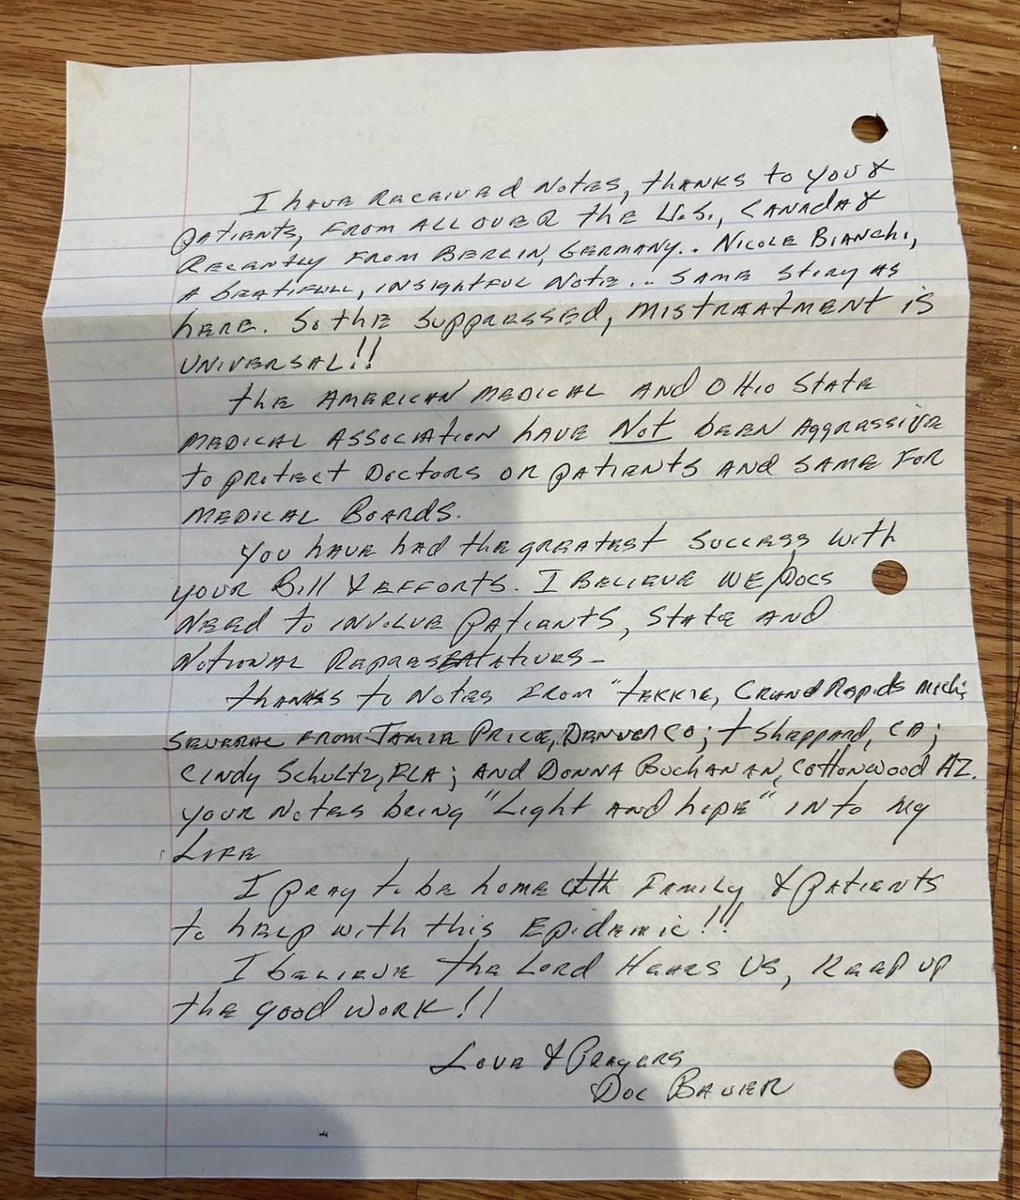 I have received notes, thanks to you &
patients, from all over the U.S., Canada &
recently from Berlin, Germany.. Nicole Bianchi,
a beatifull, insightful note... same story as
here. So the suppressed, mistreatment is
universal!!
The American Medical and Ohio State
Medical Association have Not been aggressive
to protect doctors or patients and same for
medical boards.
You have had the greatest success with
your Bill & efforts. I believe we/docs
need to involve patients, state and
national representatives -
Thanks to notes from "Tekkie, Grand Rapids Mich;
several from Jamie Price, Denver CO; T Sheppard, CA;
Cindy Schultz, FLA; and Donna Buchanan, Cottonwood AZ.
Your notes being "Light and hope" into my
life
I pray to be home with family & patients
to help with this Epidemic!!!
I believe the Lord Hears us, keep up
the good work!!
Love & Prayers
Doc Bauer